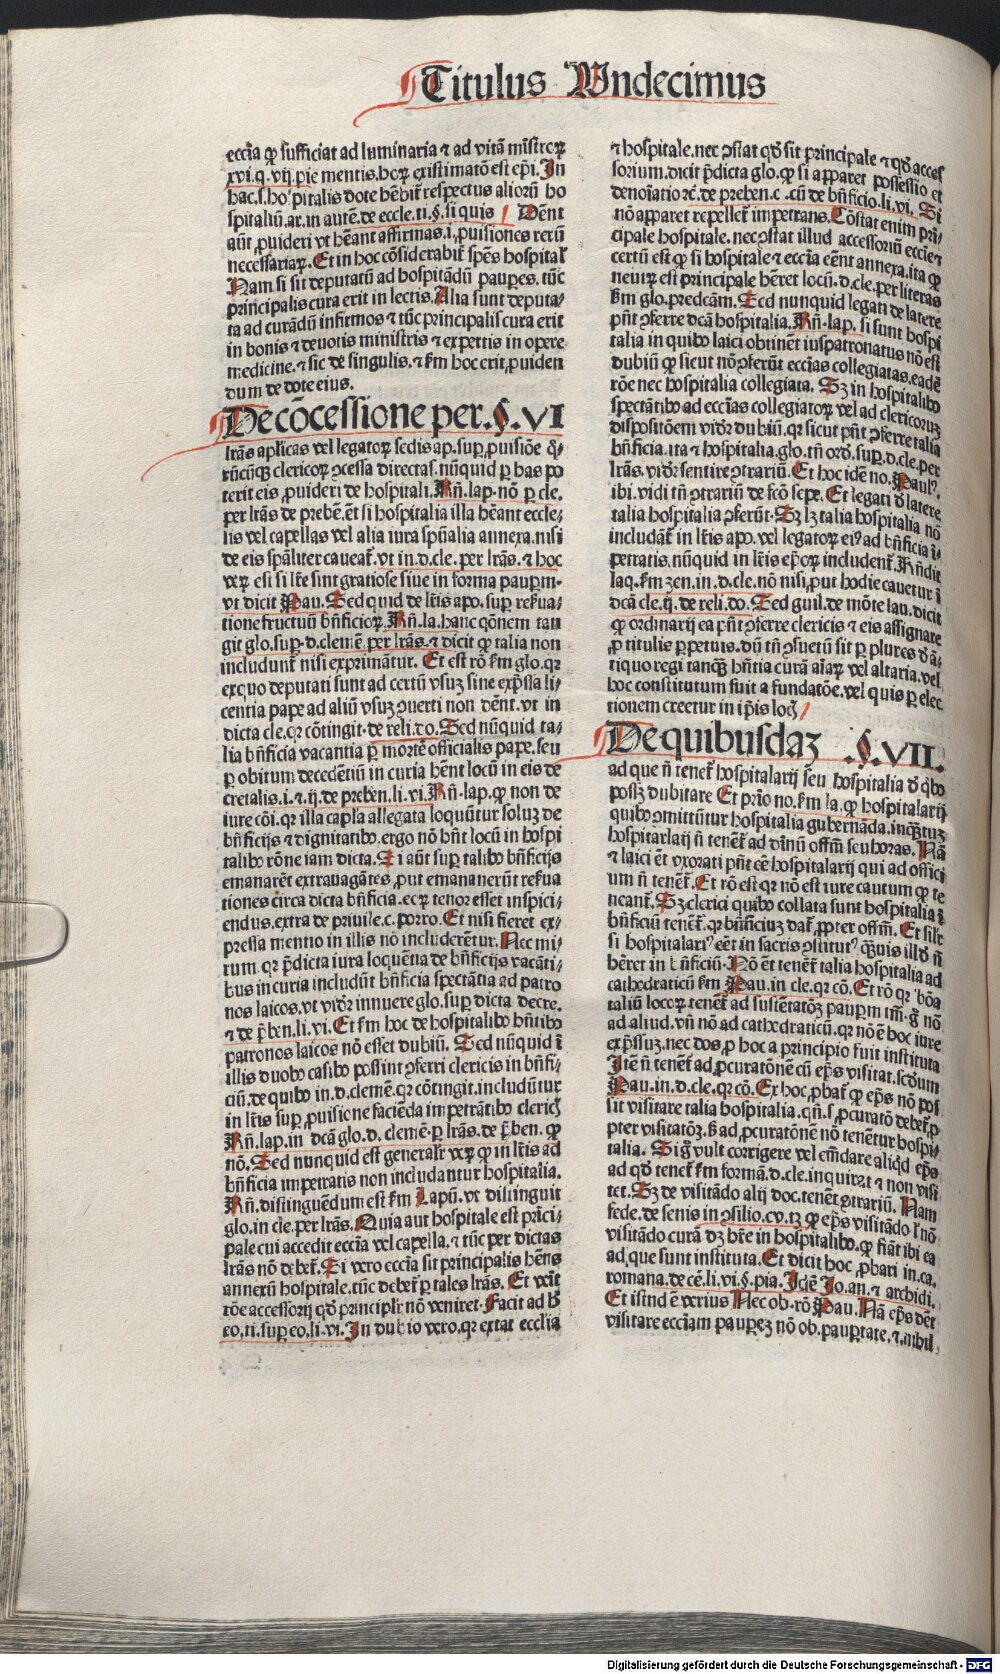 Titulus Undecimus
eccīa ꝙ sufficiat ad luminaria ⁊ ad vitā mīstroꝝ
xvi. q. vij. pie mentis. hoꝝ existimatō est epī. In
hac. s. hospitalis dote hēbit̄ respectus alioꝝ ho
spitaliū. ar. in autē. de eccle. ti. §. si quis Dēnt
aūt ꝓuideri vt hēant affirmas. i. ꝓuisiones rerū
necessariaꝝ. Et in hoc cōsiderabit̄ spēs hospitał
Nam si sit deputatū ad hospitādū pauꝑes. tūc
principalis cura erit in lectis. Alia sunt deputa/
ta ad curādū infirmos ⁊ tūc principalis cura erit
in bonis ⁊ deuotis ministris ⁊ expertis in opere
medicine. ⁊ sic de singulis. ⁊ km hoc erit ꝓuiden
dum de dote eius.
De cōcessione per. §. VI
lrās aplicas vel legatoꝝ sedis ap. suꝑ ꝓuisiōe q̄/
rūcūqꝫ clericoꝝ ꝯcessa directas. nūquid ꝑ has po
terit eis ꝓuideri de hospitali. Rñ. lap. nō ꝑ cle.
per lrās de prebē. ēt si hospitalia illa hēant eccle/
lis vel capellas vel alia iura spūalia annexa. nisi
de eis spāliter caueat̄. vt in. d. cle. per lrās. ⁊ hoc
veꝝ est si lr̄e sint gratiose siue in forma pauꝑm.
vt dicit Pau. Sed quid de lr̄is apo. suꝑ reẜua/
tione fructuū bn̄ficioꝝ. Rñ. la. hanc qōnem tan
git glo. suꝑ. d. clemē. per lrās. ⁊ dicit ꝙ talia non
includunt̄ nisi exprimātur. Et est rō km glo. qꝛ
ex quo deputati sunt ad certū vsuꝫ sine exp̄ssa li/
centia pape ad aliū vsuꝫ ꝯuerti non dēnt. vt in
dicta cle. qꝛ cōtingit. de reli. do. Sed nūquid ta/
lia bn̄ficia vacantia ꝑ mortē officialis pape. seu
ꝑ obitum decedētiū in curia hēnt locū in eis de
cretalis. i. ⁊. ij. de preben. li. vi. Rñ. lap. ꝙ non de
iure cōi. qꝛ illa capła allegata loquūtur soluꝫ de
bn̄ficijs ⁊ dignitatibꝰ. ergo nō hn̄t locū in hospi
talibꝰ rōne iam dicta. Si aūt suꝑ talibꝰ bn̄ficijs
emanarēt extrauagātes ꝓut emanauerūt reẜua
tiones circa dicta bn̄ficia. ecꝝ tenor esset inspici/
endus. extra de priuile. c. porro. Et nisi fieret ex/
pressa mentio in illis nō includerētur. Nec mi/
rum. qꝛ p̄dicta iura loquētia de bn̄ficijs vacāti/
bus in curia includūt bn̄ficia spectātia ad patro
nos laicos. vt vīdr̄ innuere glo. suꝑ dicta decre.
⁊ de p̄ben. li. vi. Et km hoc de hospitalibꝰ hn̄tibꝰ
patronos laicos nō esset dubiū. Sed nūquid ī
illis duobꝰ casibꝰ possint ꝯferri clericis in bn̄fi/
ciū. de quibꝰ in. d. clemē. qꝛ cōtingit. includūtur
in lr̄is suꝑ ꝓuisione faciēda impetrātibꝰ clericꝭ
Rñ. lap. in dcā glo. d. clemē. ꝑ lrās. de p̄ben. ꝙ
nō. Sed nunquid est generalr̄ veꝝ ꝙ in lr̄is ad
bn̄ficia impetratis non includantur hospitalia.
Rñ. distinguēdum est km Lapū. vt distinguit
glo. in cle. per lrās. Quia aut hospitale est prīci/
pale cui accedit eccīa vel capella. ⁊ tūc per dictas
lrās nō debet̄. Si vero eccīa sit principalis hēns
annexū hospitale. tūc debet̄ ꝑ tales lrās. Et veīt
rōe accessorij qđ principlr̄ nō veniret. Facit ad h̄
eo. ti. suꝑ eo. li. vi. In dubio vero. qꝛ extat ecclīa
⁊ hospitale. nec ꝯstat qđ sit principale ⁊ qđ acces
sorium. dicit p̄dicta glo. ꝙ si apparet possessio et
denoīatio ⁊c. de preben. c. cū de bn̄ficio. li. vi. Si
nō apparet repellet̄ impetrans. Cōstat enim prī/
cipale hospitale. nec ꝯstat illud accessoriū eccīe ⁊
certū est ꝙ si hospitale ⁊ eccīa eēnt annexa. ita ꝙ
neutꝝ est principale hēret locū. d. cle. per literas
km glo. predcām. Sed nunquid legati de latere
pn̄t ꝯferre dcā hospitalia. Rñ. lap. si sunt hospi
talia in quibꝰ laici obtinēt iuspatronatus nō est
dubiū ꝙ sicut nō ꝯferūt eccīas collegiatas. eadē
rōe nec hospitalia collegiata. Sꝫ in hospitalibꝰ
spectātibꝰ ad eccīas collegiatoꝝ vel ad clericoruꝫ
dispositōem vīdr̄ dubiū. qꝛ sicut pn̄t ꝯferre talia
bn̄ficia. ita ⁊ hospitalia. glo. tn̄ ord. suꝑ. d. cle. per
lrās. vīdr̄ sentire ꝯtrariū. Et hoc idē no. Paulꝰ.
ibi. vidi tn̄ ꝯtrariū de fcō sepe. Et legati đ latere
talia hospitalia ꝯferūt. Sꝫ lꝫ talia hospitalia nō
includāt̄ in lr̄is apo. vel legatoꝝ eiꝰ ad bn̄ficia ī/
petratis. nūquid in lr̄is ep̄oꝝ includent̄. Rn̄dit
laq. km zen. in. d. cle. nō nisi ꝓut hodie cauetur ī
dcā cle. ij. de reli. do. Sed guil. de mōte lau. dicit
ꝙ ordinarij ea pn̄t ꝯferre clericis ⁊ eis assignare
ꝓ titulis ꝑpetuis. dū tn̄ ꝯsuetū sit ꝑ plures đ ā/
tiquo regi tanqꝫ hn̄tia curā aīaꝝ vel altaria. vel
hoc constitutum fuit a fundatōe. vel quis ꝑ elec
tionem creetur in ip̄is locꝭ
De quibusdaꝫ §. VII.
ad que n̄ tenet̄ hospitalarij seu hospitalia đ qͥbꝰ
possꝫ dubitare Et prīo no. km la. ꝙ hospitalarij
quibꝰ ꝯmittūtur hospitalia gubernāda. inqͣꝫtuꝫ
hospitarlaij n̄ tenēt̄ ad dīnū offm̄ seu horas. Nā
⁊ laici ēt vxorati pn̄t eē hospitalarij qui ad offici
um n̄ tenēt̄. Et rō est qꝛ nō est iure cautum ꝙ te
neant̄. Sꝫ clerici quibꝰ collata sunt hospitalia ī
bn̄ficiū tenēt̄. qꝛ bn̄ficiuꝫ dat̄ ꝓpter offm̄. Et silr̄
si hospitalariꝰ eēt in sacris ꝯstitutꝰ qͣuis illđ n̄
hēret in bn̄ficiū. Nō ēt tenēt̄ talia hospitalia ad
cathedraticū km Pau. in cle. qꝛ cō. Et rō qꝛ bōa
taliū locoꝝ tenēt̄ ad sustētatōꝫ pauꝑm tm̄. gͦ nō
ad aliud. vn̄ nō ad cathedraticū. qꝛ nō ē hoc iure
exp̄ssuꝫ. nec dos ꝓ hoc a principio fuit instituta
Itē n̄ tenēt̄ ad ꝓcuratōnē cū ep̄s visitat. scđum
Pau. in. d. cle. qꝛ cō. Ex hoc ꝓbat̄ ꝙ ep̄s nō pos
sit visitare talia hospitalia. qn̄. s. ꝓcuratō debet̄ ꝓ
pter visitatōꝫ. s̄ ad ꝓcuratōnē nō tenētur hospi/
talia. Si gͦ vult corrigere vel emēdare aliqͥd ep̄s
ad qđ tenet̄ km formā. d. cle. inquirat ⁊ non visi
tet. Sꝫ de visitādo alij doc. tenēt ꝯtrariū. Nam
fede. de senis in ꝯsilio. cv. tꝫ ꝙ ep̄s visitādo lꝫ nō
visitādo curā dꝫ hr̄e in hospitalibꝰ. ꝙ fiāt ibi ea
ad que sunt instituta. Et dicit hoc ꝓbari in. ca.
romana. de cē. li. vi. §. pia. Idē Jo. an. ⁊ archidi.
Et istud ē verius Nec ob. rō Pau. Nā ep̄s dēt
visitare eccīam pauꝑeꝫ nō ob. pauꝑtate. ⁊. nihil
Digitalisierung gefördert durch die Deutsche Forschungsgemeinschaft - DFG